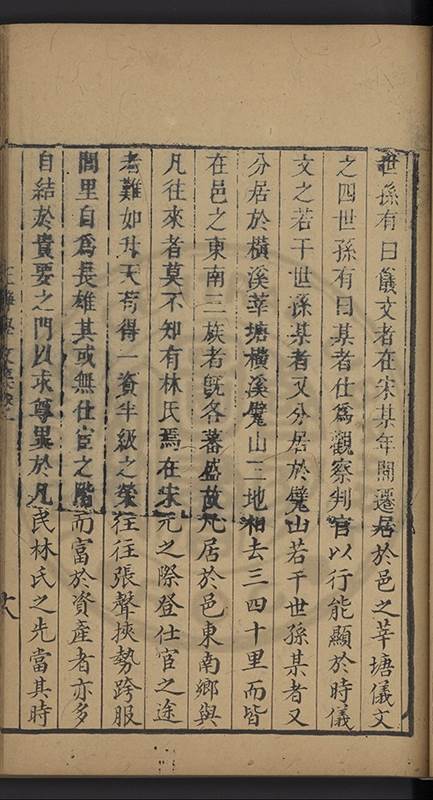 世孫有曰儀文者在宋某年間遷居於邑之莘塘儀文
之四世孫有曰某者仕爲觀察判官以行能顯於時儀
文之若干世孫某者又分居於甓山若干世孫某者又
分居於橫溪莘塘橫溪甓山三地相去三四十里而皆
在邑之東南三族者旣各蕃盛故凡居於邑東南鄉與
凡往來者莫不知有林氏焉在宋元之際登仕宦之途
者難如升天苟得一資半級之榮往往張聲挾勢跨服
閭里自爲長雄其或無仕宦之階而富於資產者亦多
自結於貴要之門以求尊異於凡民林氏之先當其時